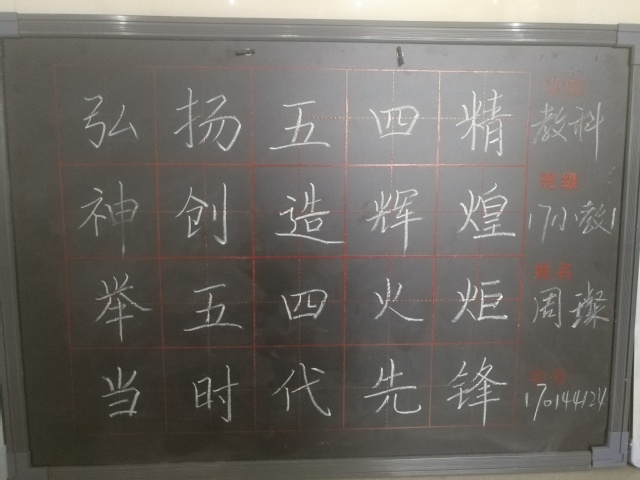 弘扬五四精
神创造辉煌
举五四火炬
当时代先锋
教科
班级
17小教1
姓名
周璨
170144124